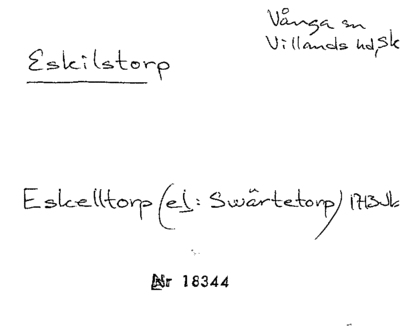 Vånga sn
Villands hd, Sk
Eskilstorp
Eskelltorp (el: Swärtetorp) 1713 Jb
Nr 18344